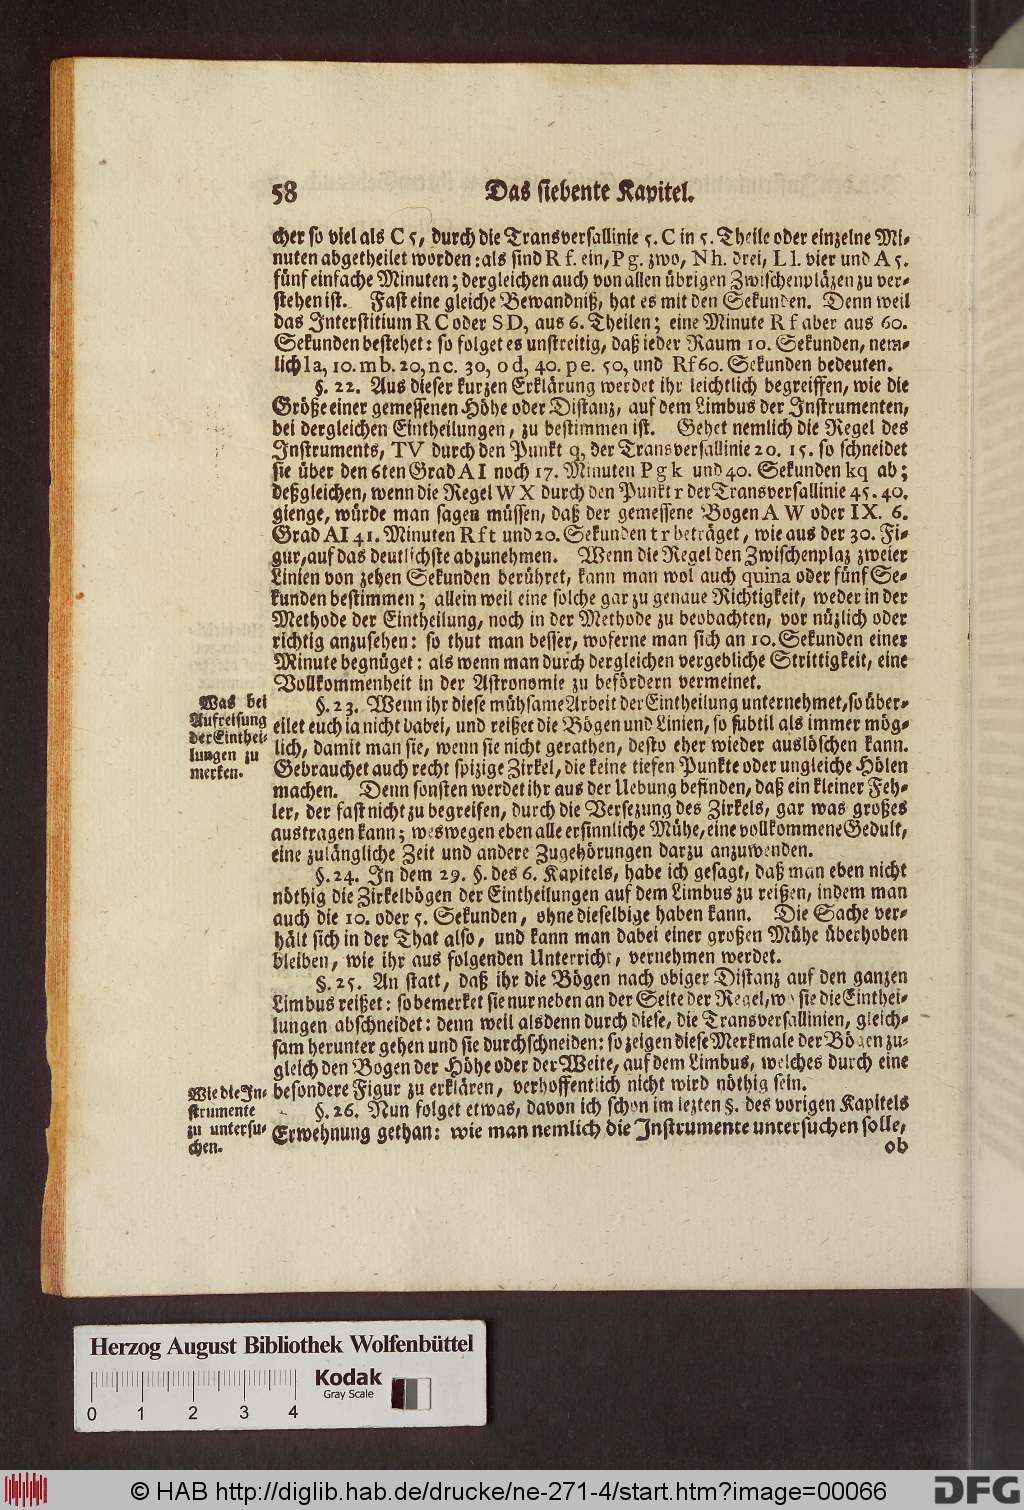 58 Das siebente Kapitel.
cher so viel als C 5, durch die Transversallinie 5. C in 5. Theile oder einzelne Mi-
nuten abgetheilet worden: als sind R f. ein, P g. zwo, N h. drei, L l. vier und A 5.
fünf einfache Minuten; dergleichen auch von allen übrigen Zwischenpläzen zu ver-
stehen ist. Fast eine gleiche Bewandniß, hat es mit den Sekunden. Denn weil
das Interstitium R C oder S D, aus 6. Theilen; eine Minute R f aber aus 60.
Sekunden bestehet: so folget es unstreitig, daß ieder Raum 10. Sekunden, nem-
lich l a, 10. m b. 20, n c. 30, o d, 40. p e. 50, und R f 60. Sekunden bedeuten.
§. 22. Aus dieser kurzen Erklärung werdet ihr leichtlich begreiffen, wie die
Größe einer gemessenen Höhe oder Distanz, auf dem Limbus der Instrumenten,
bei dergleichen Eintheilungen, zu bestimmen ist. Gehet nemlich die Regel des
Instruments, TV durch den Punkt q, der Transversallinie 20. 15. so schneidet
sie über den 6ten Grad A I noch 17. Minuten P g k und 40. Sekunden kq ab;
deßgleichen, wenn die Regel W X durch den Punkt r der Transversallinie 45. 40.
gienge, würde man sagen müssen, daß der gemessene Bogen A W oder I X. 6.
Grad A I 41. Minuten R f t und 20. Sekunden t r beträget, wie aus der 30. Fi-
gur, auf das deutlichste abzunehmen. Wenn die Regel den Zwischenplaz zweier
Linien von zehen Sekunden berühret, kann man wol auch quina oder fünf Se-
kunden bestimmen; allein weil eine solche gar zu genaue Richtigkeit, weder in der
Methode der Eintheilung, noch in der Methode zu beobachten, vor nüzlich oder
richtig anzusehen: so thut man besser, woferne man sich an 10. Sekunden einer
Minute begnüget: als wenn man durch dergleichen vergebliche Strittigkeit, eine
Vollkommenheit in der Astronomie zu befördern vermeinet.
Was bei
Aufreisung
der Einthei-
lungen zu
merken.
§. 23. Wenn ihr diese mühsame Arbeit der Eintheilung unternehmet, so über-
eilet euch ia nicht dabei, und reißet die Bögen und Linien, so subtil als immer mög-
lich, damit man sie, wenn sie nicht gerathen, desto eher wieder auslöschen kann.
Gebrauchet auch recht spizige Zirkel, die keine tiefen Punkte oder ungleiche Hölen
machen. Denn sonsten werdet ihr aus der Uebung befinden, daß ein kleiner Feh-
ler, der fast nicht zu begreifen, durch die Versezung des Zirkels, gar was großes
austragen kann; weswegen eben alle ersinnliche Mühe, eine vollkommene Gedult,
eine zulängliche Zeit und andere Zugehörungen darzu anzuwenden.
§. 24. In dem 29. §. des 6. Kapitels, habe ich gesagt, daß man eben nicht
nöthig die Zirkelbögen der Eintheilungen auf dem Limbus zu reißen, indem man
auch die 10. oder 5. Sekunden, ohne dieselbige haben kann. Die Sache ver-
hält sich in der That also, und kann man dabei einer großen Mühe überhoben
bleiben, wie ihr aus folgenden Unterricht, vernehmen werdet.
§. 25. An statt, daß ihr die Bögen nach obiger Distanz auf den ganzen
Limbus reißet: so bemerket sie nur neben an der Seite der Regel, wo sie die Einthei-
lungen abschneidet: denn weil alsdenn durch diese, die Transversallinien, gleich-
sam herunter gehen und sie durchschneiden: so zeigen diese Merkmale der Bögen zu-
gleich den Bogen der Höhe oder der Weite, auf dem Limbus, welches durch eine
besondere Figur zu erklären, verhoffentlich nicht wird nöthig sein.
Wie die In-
strumente
zu untersu-
chen.
§. 26. Nun folget etwas, davon ich schon im lezten §. des vorigen Kapitels
Erwehnung gethan: wie man nemlich die Instrumente untersuchen solle,
ob
Herzog August Bibliothek Wolfenbüttel
Kodak
Gray Scale
0 1 2 3 4
© HAB http://diglib.hab.de/drucke/ne-271-4/start.htm?image=00066
DFG